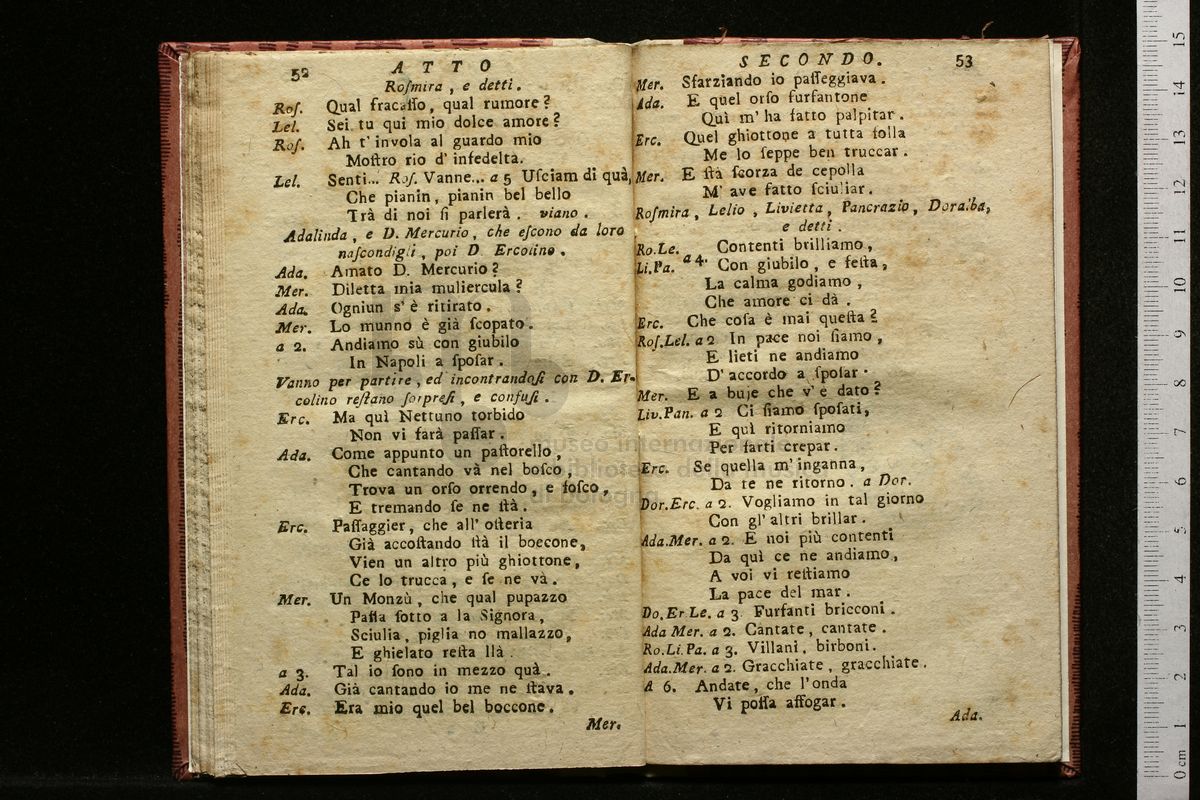 52 ATTO
Roſmira, e detti.
Roſ. Qual fracaſſo, qual rumore?
Lel. Sei tu qui mio dolce amore?
Roſ. Ah t'invola al guardo mio
Moſtro rio d'infedelta.
Lel. Senti... Roſ. Vanne... a 5 Uſciam di quà,
Che pianin, pianin bel bello
Trà di noi ſi parlerà. viano.
Adalinda, e D. Mercurio, che eſcono da loro
naſcondigli, poi D. Ercolino.
Ada. Amato D. Mercurio?
Mer. Diletta mia muliercula?
Ada. Ogniun s'è ritirato.
Mer. Lo munno è già ſcopato.
a 2. Andiamo sù con giubilo
In Napoli a ſpoſar.
Vanno per partire, ed incontrandoſi con D. Er-
colino reſtano ſorpreſi, e confuſi.
Erc. Ma quì Nettuno torbido
Non vi farà paſſar.
Ada. Come appunto un paſtorello,
Che cantando và nel boſco,
Trova un orſo orrendo, e foſco,
E tremando ſe ne ſtà.
Erc. Paſſaggier, che all' oſteria
Già accoſtando ſtà il boccone,
Vien un altro più ghiottone,
Ce lo trucca, e ſe ne và.
Mer. Un Monzù, che qual pupazzo
Paſſa ſotto a la Signora,
Sciulia, piglia no mallazzo,
E ghielato reſta llà.
a 3. Tal io ſono in mezzo quà.
Ada. Già cantando io me ne ſtava.
Erc. Era mio quel bel boccone.
Mer.
SECONDO. 53
Mer. Sfarziando io paſſeggiava.
Ada. E quel orſo furfantone
Quì m'ha fatto palpitar.
Erc. Quel ghiottone a tutta folla
Me lo ſeppe ben truccar.
Mer. E ſtà ſcorza de cepolla
M'ave fatto ſciuliar.
Roſmira, Lelio, Livietta, Pancrazio, Doralba,
e detti.
Ro.Le. Contenti brilliamo,
Li.Pa. a 4. Con giubilo, e feſta,
La calma godiamo,
Che amore ci dà.
Erc. Che coſa è mai queſta?
Roſ.Lel. a 2 In pace noi ſiamo,
E lieti ne andiamo
D'accordo a ſpoſar.
Mer. E a buje che v'è dato?
Liv.Pan. a 2 Ci ſiamo ſpoſati,
E quì ritorniamo
Per farti crepar.
Erc. Se quella m'inganna,
Da te ne ritorno. a Dor.
Dor.Erc. a 2. Vogliamo in tal giorno
Con gl'altri brillar.
Ada.Mer. a 2. E noi più contenti
Da quì ce ne andiamo,
A voi vi reſtiamo
La pace del mar.
Do.Er Le. a 3. Furfanti bricconi.
Ada Mer. a 2. Cantate, cantate.
Ro.Li.Pa. a 3. Villani, birboni.
Ada.Mer. a 2. Gracchiate, gracchiate.
A 6. Andate, che l'onda
Vi poſſa affogar.
Ada.
museo internazionale
biblioteca della musica
di bologna
15
14
13
12
11
10
9
8
7
6
5
4
3
2
1
0 cm